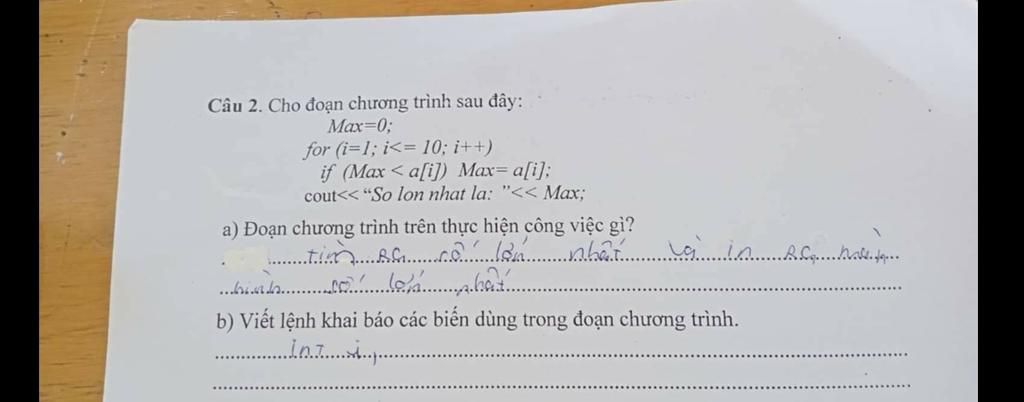 Câu 2. Cho đoạn chương trình sau đây:
Max=0;
for (i=1; i<= 10; i++)
if (Max < a[i]) Max= a[i];
cout<< “So lon nhat la: ”<< Max;
a) Đoạn chương trình trên thực hiện công việc gì?
tìm ra số lớn nhất và in ra màn
hình số lớn nhất
b) Viết lệnh khai báo các biến dùng trong đoạn chương trình.
int i,